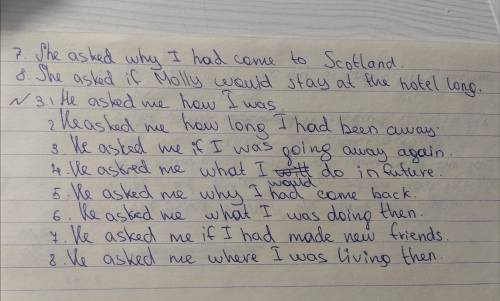 7. She asked why I had come to Scotland.
8. She asked if Molly would stay at the hotel long.
N 3. 1 He asked me how I was
2. He asked me how long I had been away.
3 He asked me if I was going away again.
4. He askred me what I will would do in future.
5. He asked me why I had come back.
6. He asked me what I was doing then.
7. He asked me if I had made new friends.
8. He asked me where I was living then.